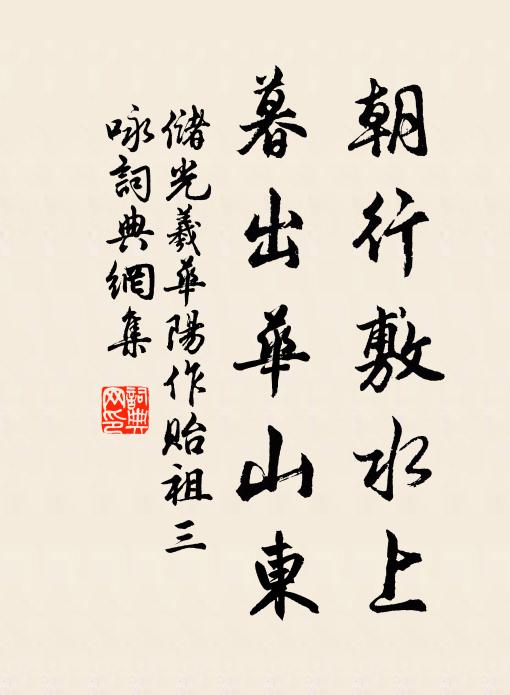 朝行敷水上
暮出華山東
儲光羲華陽作貽祖三
咏詞典網集
詞典
网印